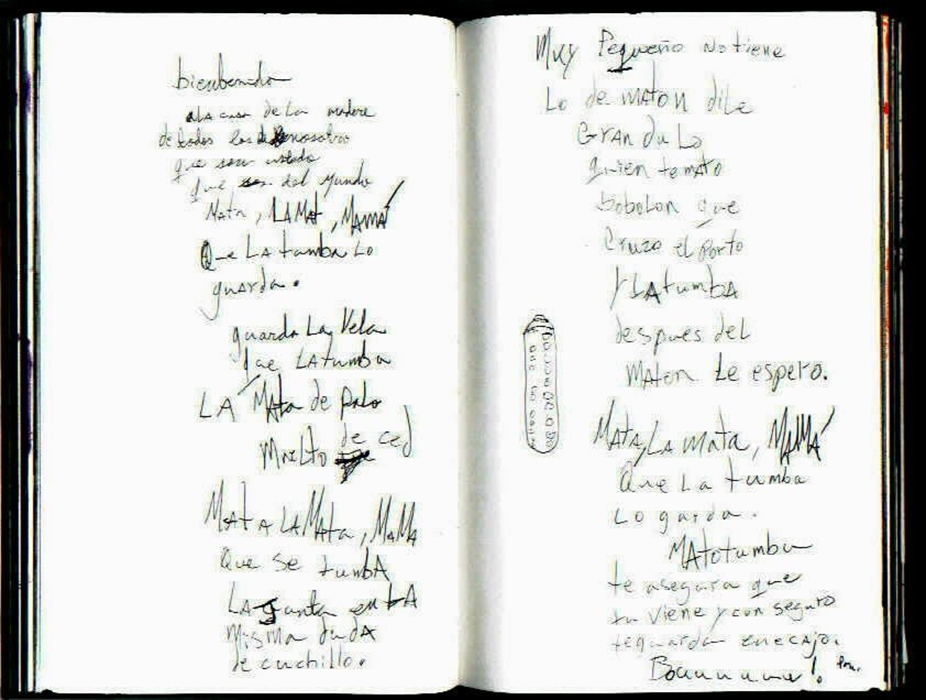 bienbenido
a LA casa de La madre
de todos los
que sean
que del mundo
Mata, LA Mat, MaMá
Que LA tumba Lo
guarda.
guarda La Vela
que LA tumba
LA Mata de palo
Muelto de ced
Mat A LA Mata, MaMA
Que Se tumbA
LA Junta en LA
Misma duda
de cuchillo.
Muy Pequeño No tiene
Lo de MATON dile
GRAN du Lo
quien te mato
bobolon que
Cruzo el Porto
Y LA tumbA
despues del
MAton Le espero.
MATA, La mata, MAMÁ
Que La tumba
Lo garda.
MAtotumba
te asegura que
tu Viene y con seguro
te guarda en e CAJO.
Bauuuuu!